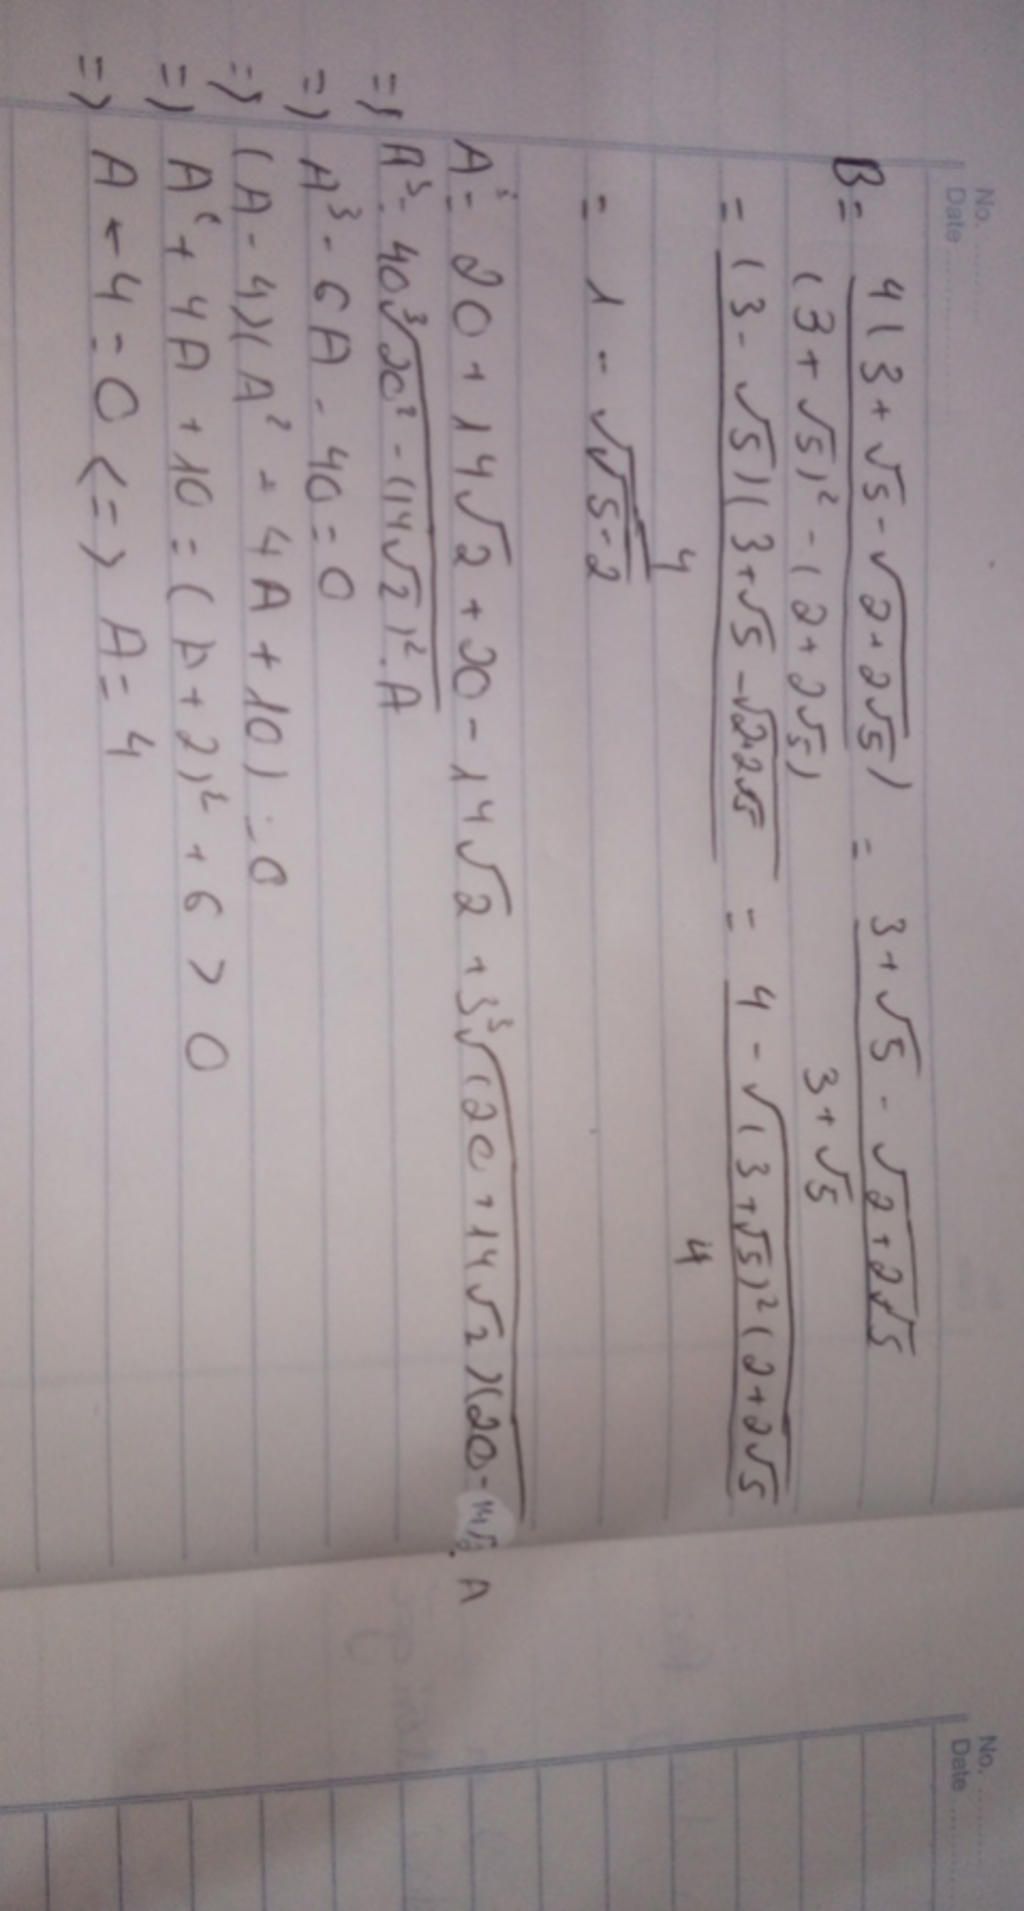 No.
Date
B = 4(3+√5-√(2+2√5)) / ((3+√5)² - (2+2√5)) = (3+√5-√(2+2√5)) / (3+√5)
= (3-√5)(3+√5-√(2+2√5)) / 4 = (4-√((3+√5)²(2+2√5))) / 4
= 1 - √(√5-2)
A³ = 20 + 14√2 + 20 - 14√2 + 3∛((20+14√2)(20-14√2)).A
=> A³ = 40 ∛(20² - (14√2)²).A
=> A³ - 6A - 40 = 0
=> (A-4)(A² + 4A + 10) = 0
=> A² + 4A + 10 = (A+2)² + 6 > 0
=> A - 4 = 0 <=> A = 4
No.
Date